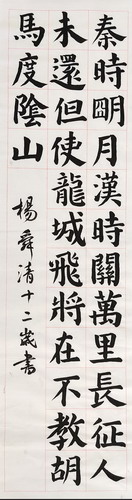 秦時明月漢時關萬里長征人
未還但使龍城飛將在不教胡
馬度陰山
楊舜清十二歲書